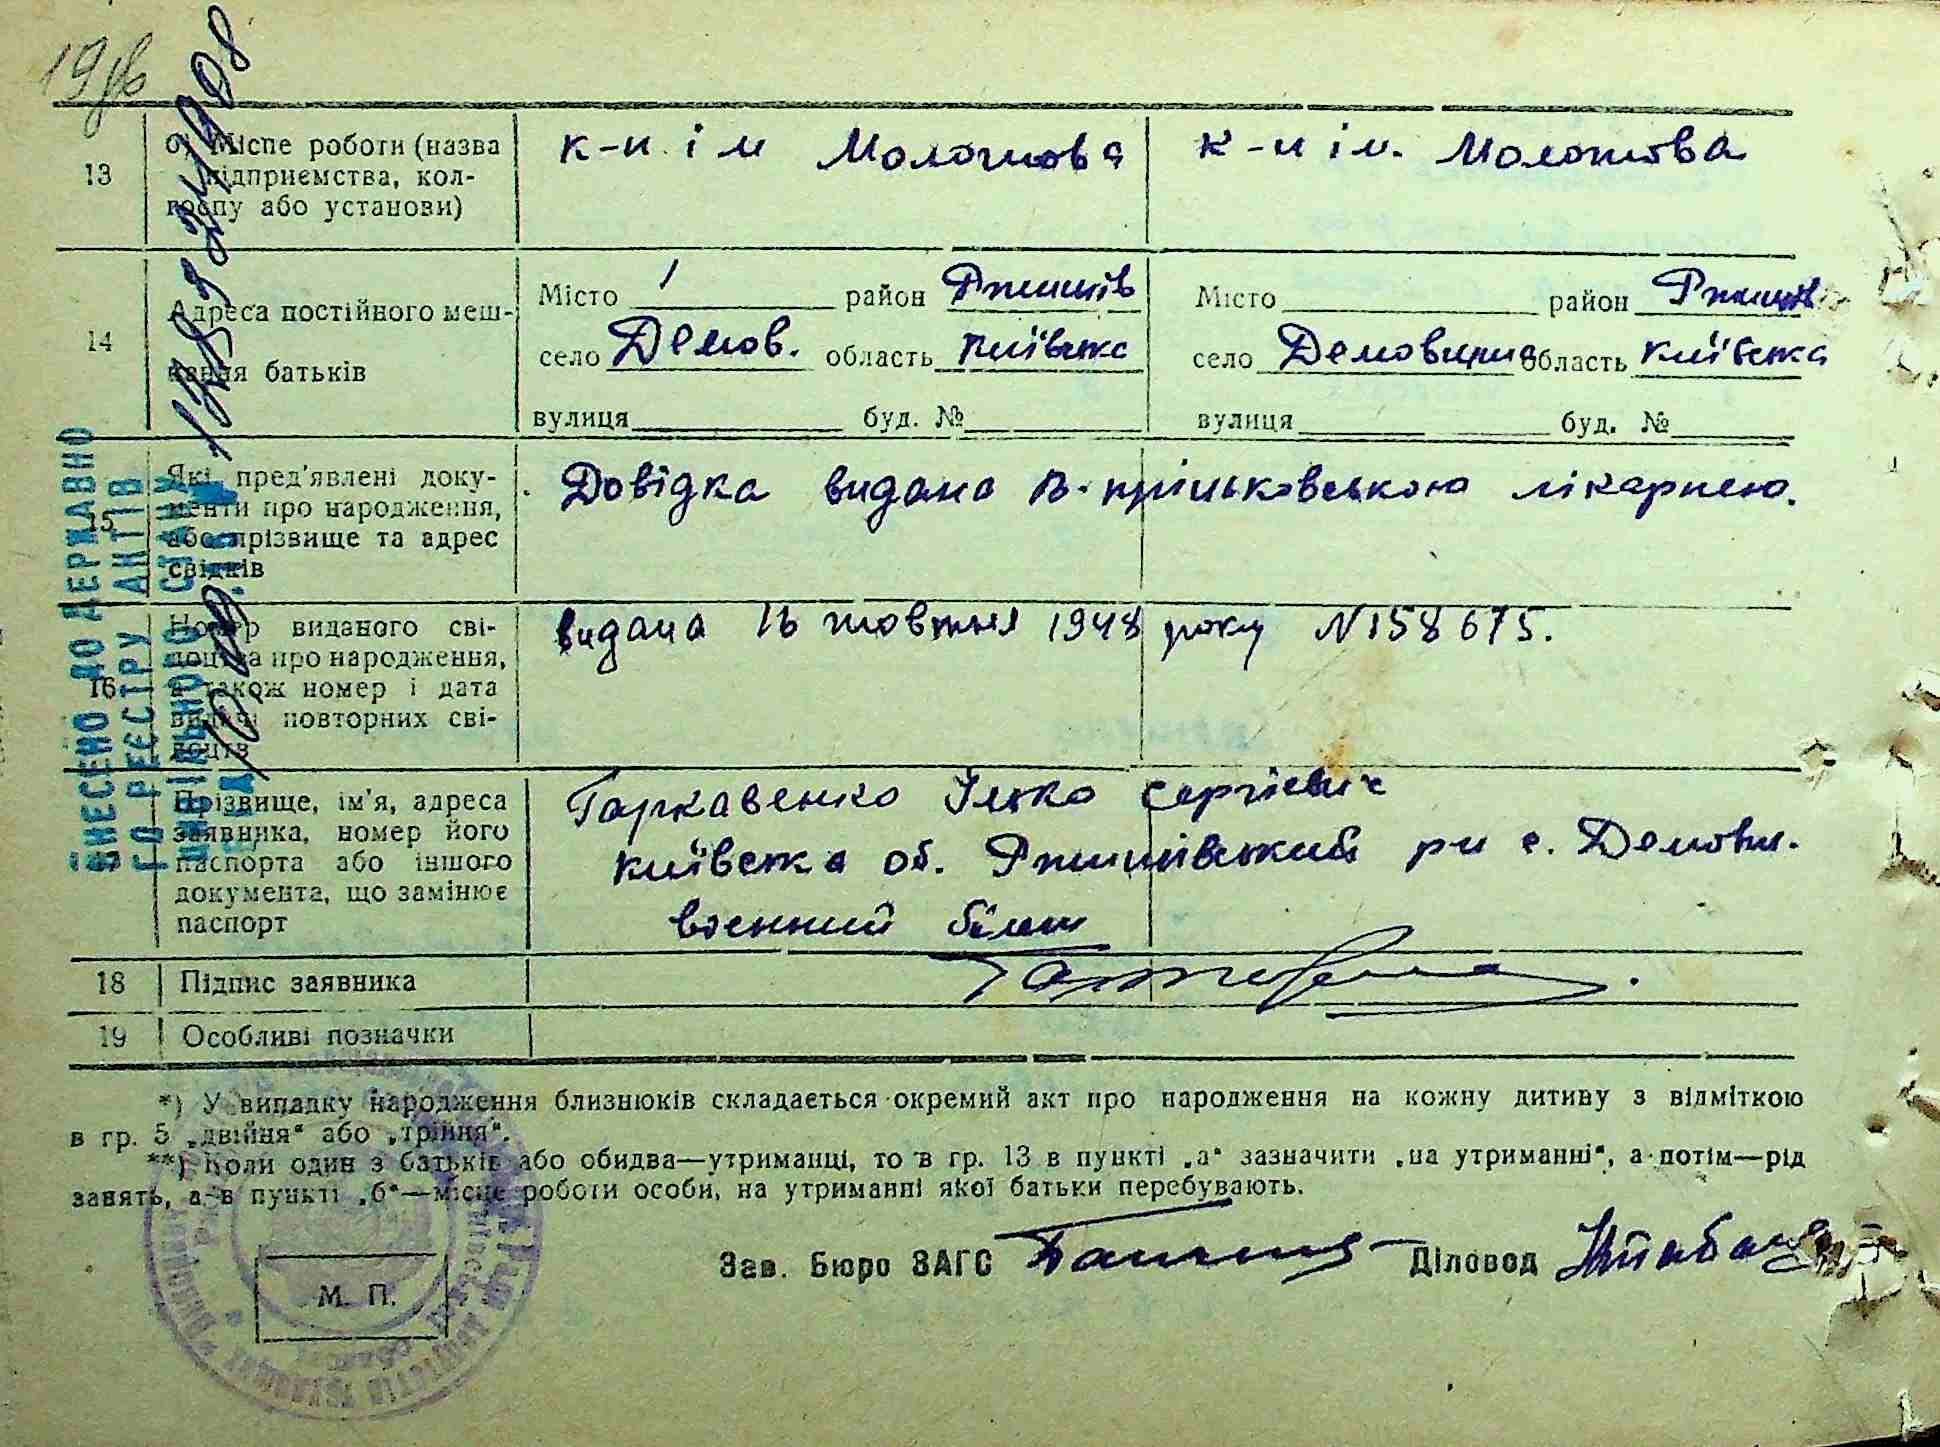 19
13
б) Місце роботи (назва
підприємства, кол-
госпу або установи)
к-п ім Молотова
к-п ім. Молотова
14
Адреса постійного меш-
кання батьків
Місто район Ржищів
село Демов. область Київська
вулиця буд. №
Місто район Ржищів
село Демовщина область Київська
вулиця буд. №
15
Які пред'явлені доку-
менти про народження,
або прізвище та адрес
свідків
Довідка видана лікарнею.
16
Номер виданого сві-
доцтва про народження,
а також номер і дата
видачі повторних сві-
доцтв
видана 16 жовтня 1948 року N158675.
17
Прізвище, ім'я, адреса
заявника, номер його
паспорта або іншого
документа, що замінює
паспорт
Гаркавенко Ілько Сергієвіч
Київська об. Ржищівський рн с. Демовщ.
воєнний білет
18 Підпис заявника
19 Особливі позначки
ВНЕСЕНО ДО ДЕРЖАВНО
ГО РЕЄСТРУ АКТІВ
ЦИВІЛЬНОГО СТАНУ
*) У випадку народження близнюків складається окремий акт про народження на кожну дитину з відміткою
в гр. 5 „двійня“ або „трійня“.
**) Коли один з батьків або обидва—утриманці, то в гр. 13 в пункті „а“ зазначити „на утриманні“, а потім—рід
занять, а в пункті „б“—місце роботи особи, на утриманні якої батьки перебувають.
Зав. Бюро ЗАГС Діловод
М. П.